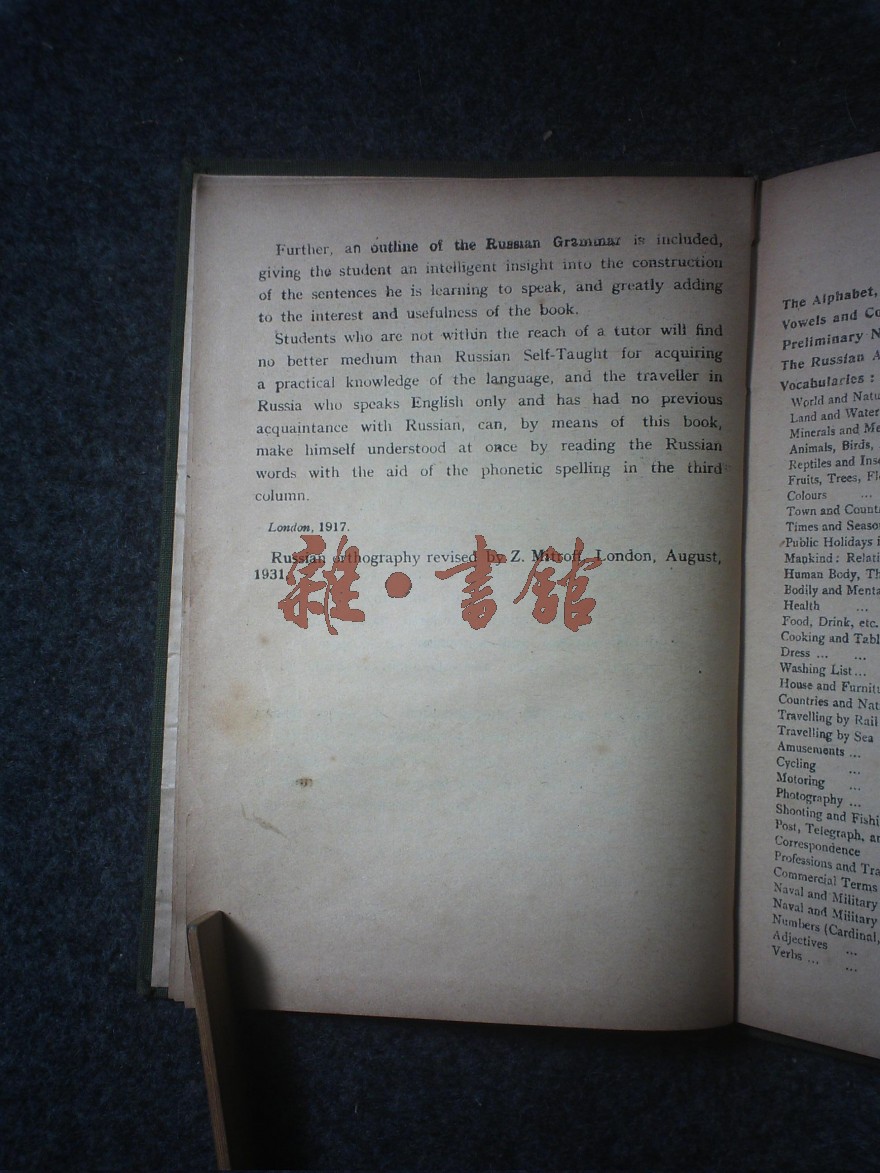 Further, an outline of the Russian Grammar is included,
giving the student an intelligent insight into the construction
of the sentences he is learning to speak, and greatly adding
to the interest and usefulness of the book.
Students who are not within the reach of a tutor will find
no better medium than Russian Self-Taught for acquiring
a practical knowledge of the language, and the traveller in
Russia who speaks English only and has had no previous
acquaintance with Russian, can, by means of this book,
make himself understood at once by reading the Russian
words with the aid of the phonetic spelling in the third
column.
London, 1917.
Russian orthography revised by Z. Mitroff, London, August,
1931.
雜·書館
The Alphabet,
Vowels and Co
Preliminary N
The Russian A
Vocabularies :
World and Natu
Land and Water
Minerals and Me
Animals, Birds,
Reptiles and Inse
Fruits, Trees, Fl
Colours ...
Town and Count
Times and Seaso
Public Holidays i
Mankind : Relati
Human Body, Th
Bodily and Menta
Health ...
Food, Drink, etc.
Cooking and Tabl
Dress ... ...
Washing List ...
House and Furnitu
Countries and Nat
Travelling by Rail
Travelling by Sea
Amusements ...
Cycling ...
Motoring ...
Photography ...
Shooting and Fishi
Post, Telegraph, an
Correspondence
Professions and Tra
Commercial Terms
Naval and Military
Naval and Military
Numbers (Cardinal,
Adjectives ...
Verbs ... ...